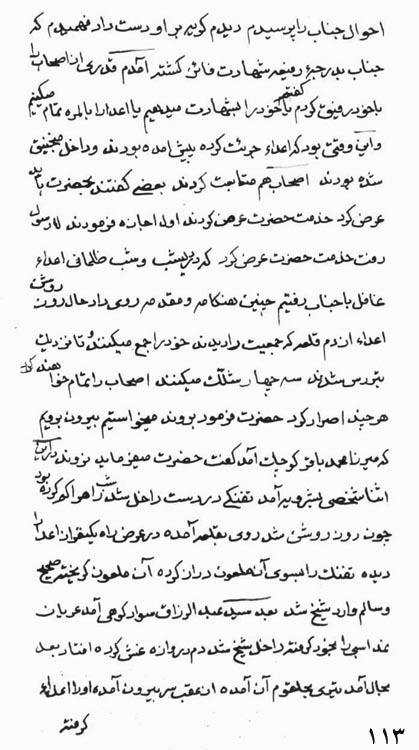 احوال جناب را پرسیدم دیدم گویه بر او دست داد فهمیدم که
جناب بدرجهٔ رفیعه شهادت فائز گشتند آمدم قدری از اصحاب را
با خود رفیق کردم گفتم یا خود را بشهادت میدهیم یا اعدا را بالمره تمام میکنیم
و این وقتی بود که اعداء جرئت کرده پیش آمده بودند و داخل منجنیق
شده بودند اصحاب هم متابعت کردند بعضی گفتند بحضرت باید
عرض کرد خدمت حضرت عرض کردند اول اجازه فرمودند لا رسول
رفت خدمت حضرت عرض کرد که دیریست و شب ظلمانی اعداء
غافل با جناب رفتیم چنین هنگامه و مقدمه روی داد حال روز روشن
اعداء از دم قلعه که جمعیت را دیدند خود را جمع میکنند و تا نزدیک
بترس شدند سه چهار شلیک میکنند اصحاب را تمام خواهند کرد
هر چند اصرار کرد حضرت فرمود بروند میخواستیم بیرون برویم
که میرزا محمد باقر کوچک آمد گفت حضرت میفرماید نروند در این
اثنا شخصی بشیرویه آمد تفنگی در دست داخل شد هوا کم کم
چون روز روشن شد روی بقلعه آمده در عرض راه یکنفر از اعدا را
دیده تفنگ را بسوی آن ملعون دراز کرده آن ملعون گریخته صحیح
و سالم وارد شیخ شد بعد سید عبد الرزاق سوادکوهی آمد عریان
نمد اسبی را بخود گرفته داخل شیخ شد دم دروازه غش کرده افتاد بعد
بحال آمد تیری بحلقوم آن آمده از عقب سر بیرون آمده او را اعداء
گرفتند
۱۱۳